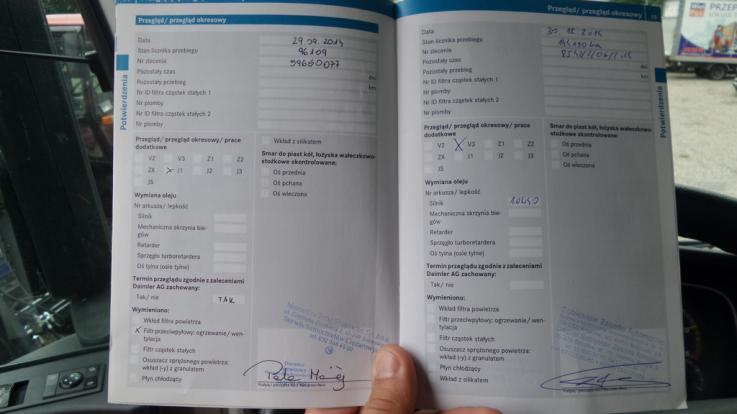 Przegląd/ przegląd okresowy
Data 29.09.2014
Stan licznika przebiegu 96109
Nr zlecenia 59650077
Pozostały czas dni
Pozostały przebieg km
Nr ID filtra cząstek stałych 1
Nr plomby
Nr ID filtra cząstek stałych 2
Nr plomby
Potwierdzenia
Przegląd/ przegląd okresowy/ prace dodatkowe
V2 V3 Z1 Z2
ZX X J1 J2 J3
JS
Wymiana oleju
Nr arkusza/ lepkość
Silnik
Mechaniczna skrzynia bie-
gów
Retarder
Sprzęgło turboretardera
Oś tylna (osie tylne)
Termin przeglądu zgodnie z zaleceniami
Daimler AG zachowany:
Tak/ nie TAK
Wymieniono:
Wkład filtra powietrza
X Filtr przeciwpyłowy: ogrzewanie/ wen-
tylacja
Filtr cząstek stałych
Osuszacz sprężonego powietrza:
wkład (-y) z granulatem
Płyn chłodzący
Wkład z silikatem
Smar do piast kół, łożyska wałeczkowo-
stożkowe skontrolowane:
Oś przednia
Oś pchana
Oś wleczona
Przegląd/ przegląd okresowy
Data
Stan licznika przebiegu
Nr zlecenia
Pozostały czas dni
Pozostały przebieg km
Nr ID filtra cząstek stałych 1
Nr plomby
Nr ID filtra cząstek stałych 2
Nr plomby
Potwierdzenia
Przegląd/ przegląd okresowy/ prace
dodatkowe
V2 X V3 Z1 Z2
ZX J1 J2 J3
JS
Wymiana oleju
Nr arkusza/ lepkość
Silnik 10W40
Mechaniczna skrzynia bie-
gów
Retarder
Sprzęgło turboretardera
Oś tylna (osie tylne)
Termin przeglądu zgodnie z zaleceniami
Daimler AG zachowany:
Tak/ nie
Wymieniono:
Wkład filtra powietrza
Filtr przeciwpyłowy: ogrzewanie/ wen-
tylacja
Filtr cząstek stałych
Osuszacz sprężonego powietrza:
wkład (-y) z granulatem
Płyn chłodzący
Wkład z silikatem
Smar do piast kół, łożyska wałeczkowo-
stożkowe skontrolowane:
Oś przednia
Oś pchana
Oś wleczona